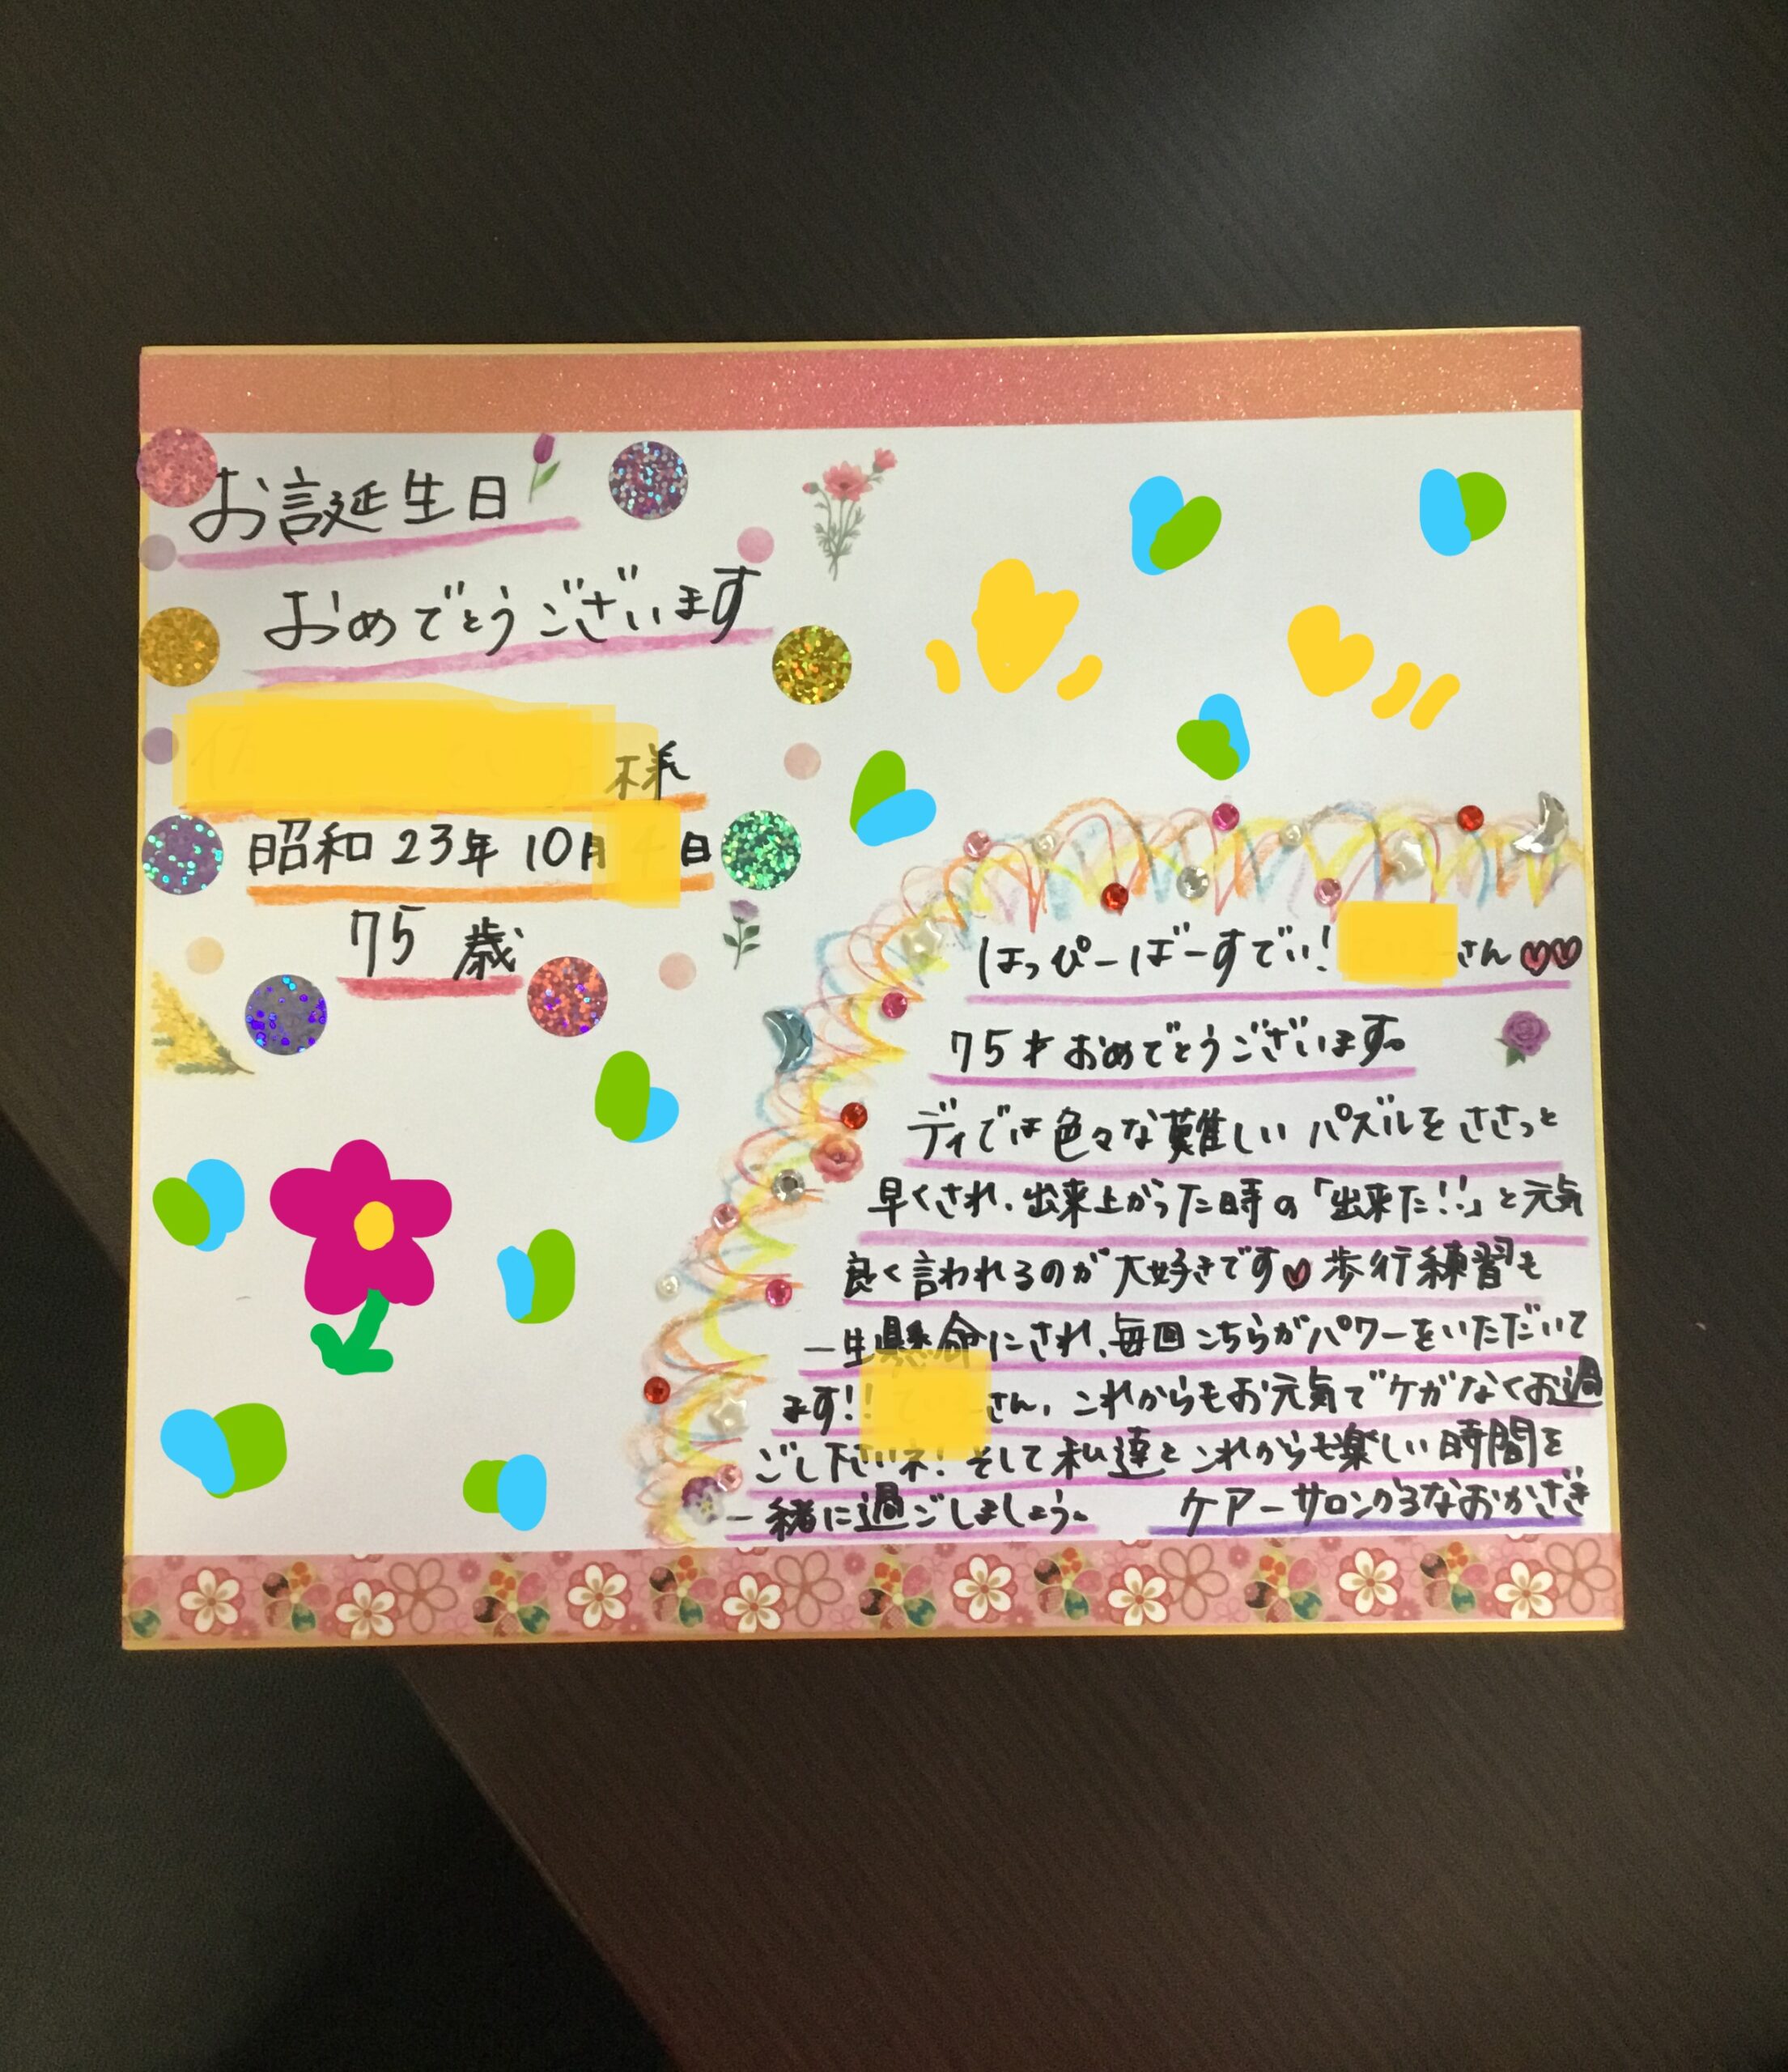 お誕生日
おめでとうございます
様
昭和23年10月 日
75歳
はっぴーばーすでい! さん♡♡
75才おめでとうございます。
ディでは色々な難しいパズルをささっと
早くされ、出来上がった時の「出来た!!」と元気
良く言われるのが大好きです♡歩行練習も
一生懸命にされ、毎回こちらがパワーをいただいて
ます!! さん、これからもお元気でケガなくお過
ごし下さいネ!そして私達とこれからも楽しい時間を
一緒に過ごしましょう。 ケアーサロンかるなおかざき